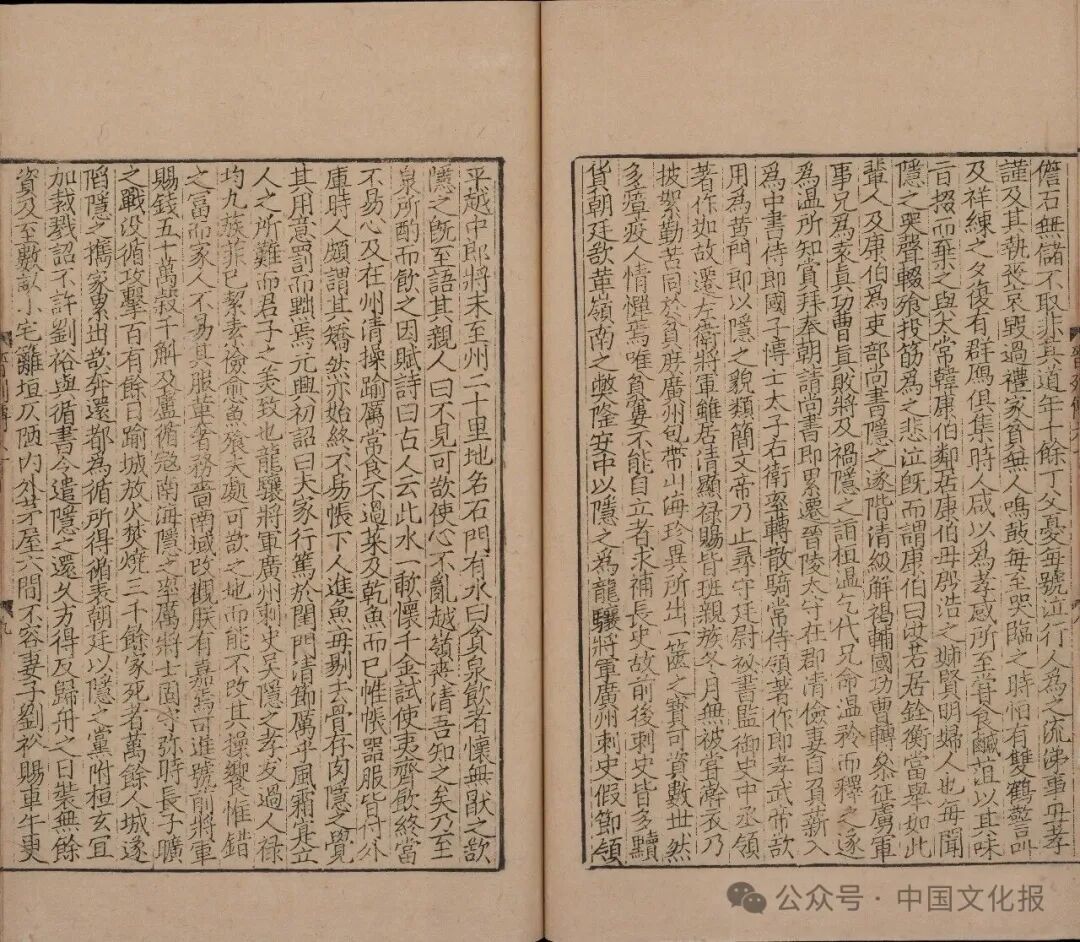 儋石無儲不取非其道年十餘丁父憂每號泣行人為之流涕事母孝
謹及其執喪哀毀過禮家貧無人鳴鼓每至哭臨之時恒有雙鶴警叫
及祥練之夕復有群鴈俱集時人咸以為孝感所至嘗食鹹菹以其味
旨掇而棄之與太常韓康伯鄰居康伯母殷浩之姊賢明婦人也每聞
隱之哭聲輟飱投筯為之悲泣既而謂康伯曰汝若居銓衡當舉如此
輩人及康伯為吏部尚書隱之遂階清級解褐輔國功曹轉叅征虜軍
事兄為袁真功曹真敗將及禍隱之詣桓溫乞代兄命溫矜而釋之遂
為溫所知賞拜奉朝請尚書郎累遷晉陵太守在郡清儉妻自負薪入
為中書侍郎國子博士太子右衛率轉散騎常侍領著作郎孝武帝欲
用為黃門郎以隱之貌類簡文帝乃止尋守廷尉秘書監御史中丞領
著作如故遷左衛將軍雖居清顯祿賜皆班親族冬月無被嘗澣衣乃
披絮勤苦同於貧庶廣州包帶山海珍異所出一篋之寶可資數世然
多瘴疫人情憚焉唯貧窶不能自立者求補長史故前後刺史皆多黷
貨朝廷欲革嶺南之弊隆安中以隱之為龍驤將軍廣州刺史假節領
平越中郎將未至州二十里地名石門有水曰貪泉飲者懷無猒之欲
隱之既至語其親人曰不見可欲使心不亂越嶺喪清吾知之矣乃至
泉所酌而飲之因賦詩曰古人云此水一歃懷千金試使夷齊飲終當
不易心及在州清操踰厲常食不過菜及乾魚而已帷帳器服皆付外
庫時人頗謂其矯然亦始終不易帳下人進魚每剔去骨存肉隱之覺
其用意罰而黜焉元興初詔曰夫家行篤於閨門清節厲乎風霜寔立
人之所難而君子之美致也龍驤將軍廣州刺史吳隱之孝友過人祿
均九族菲已絜素儉愈魚飱夫處可欲之地而能不改其操饗惟錯
之富而家人不易其服革奢務嗇南域改觀朕有嘉焉可進號前將軍
賜錢五十萬穀千斛及盧循寇南海隱之率厲將士固守弥時長子曠
之戰没循攻擊百有餘日踰城放火焚燒三千餘家死者萬餘人城遂
陷隱之攜家累出欲奔還都為循所得循表朝廷以隱之黨附桓玄宜
加裁戮詔不許劉裕與循書令遣隱之還久方得反歸舟之日裝無餘
資及至數畝小宅籬垣仄陋内外茅屋六間不容妻子劉裕賜車牛更
公众号·中国文化报